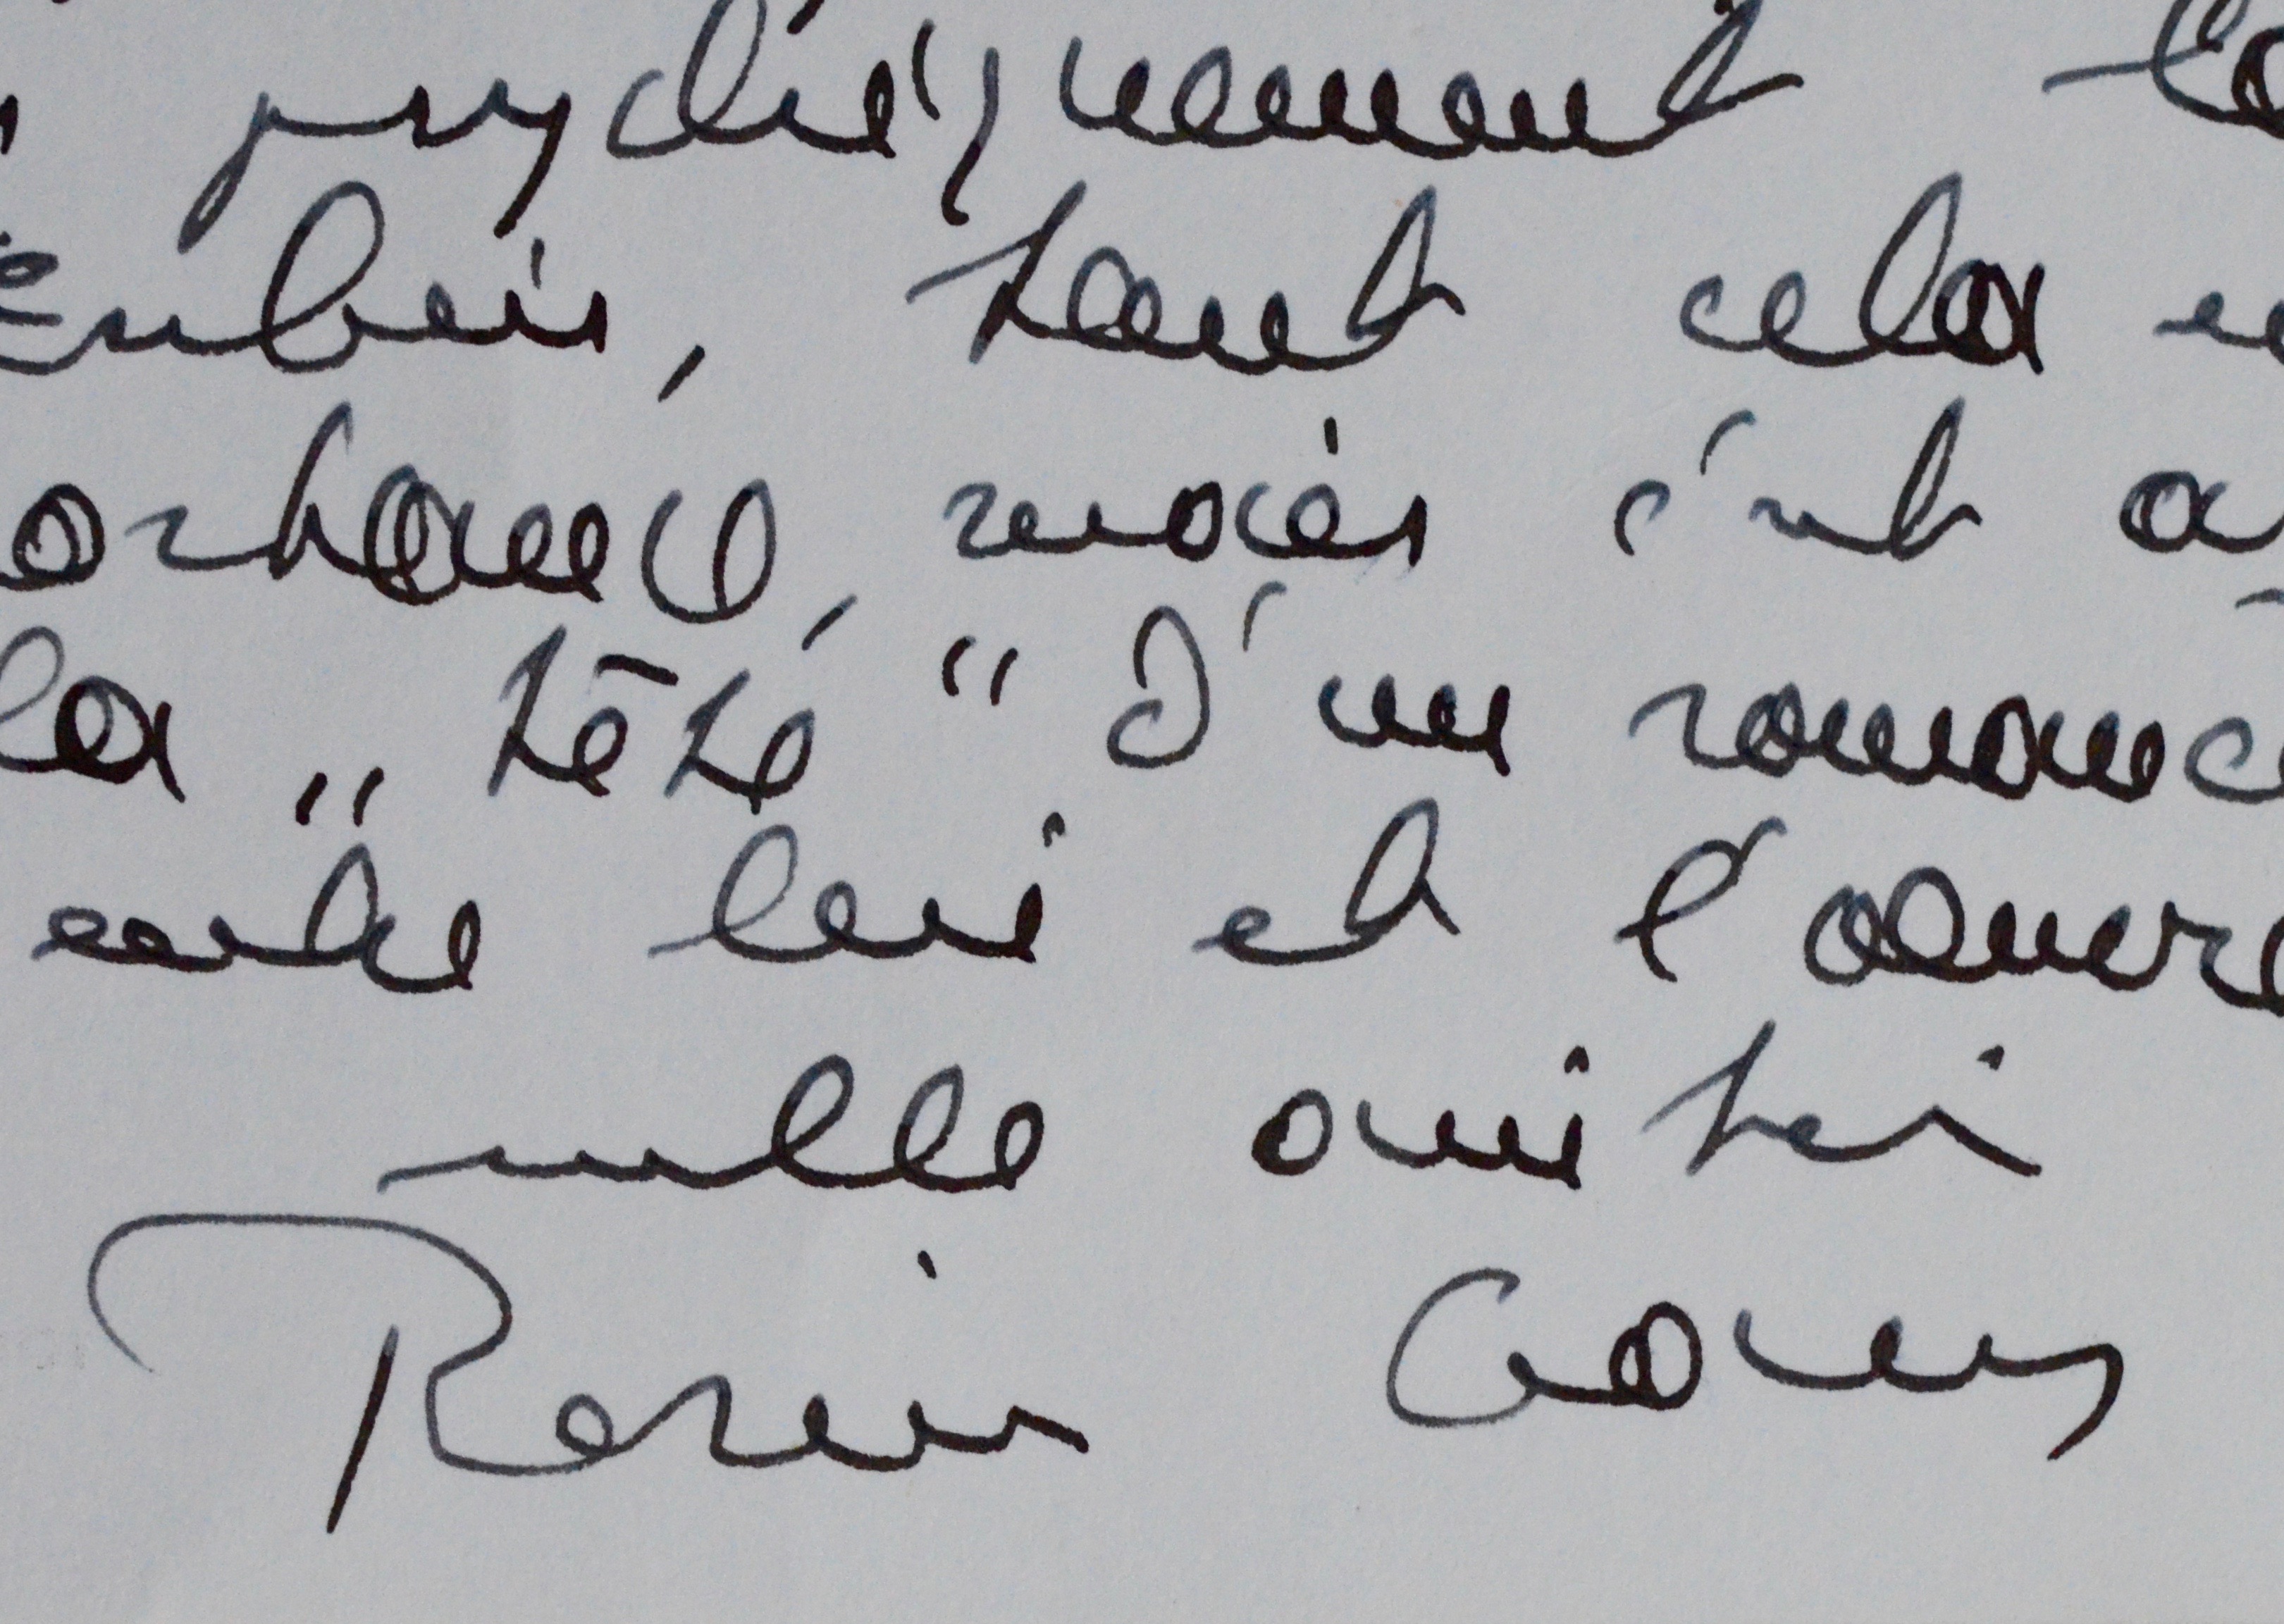 psychiquement
tout cela
mais c'est
la „ tête " d'un romanc
entre lui et l'oeuvre
mille amitiés
Romain Gary